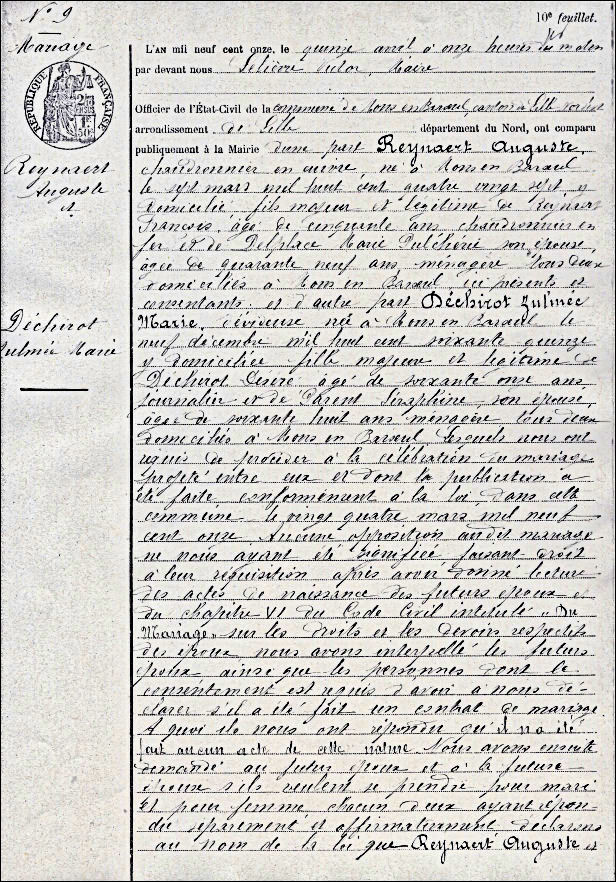 N° 9
Mariage
10e feuillet.
RÉPUBLIQUE FRANÇAISE
Reynaert
Auguste
et
Déchirot
Zulmée Marie
L'AN mil neuf cent onze, le quinze avril à onze heures du matin
par devant nous Lelièvre Victor, Maire
Officier de l'État-Civil de la commune de Mons en Barœul, canton de Lille
arrondissement de Lille département du Nord, ont comparu
publiquement à la Mairie d'une part Reynaert Auguste,
chaudronnier en cuivre, né à Mons en Barœul
le sept mars mil huit cent quatre vingt sept, y
domicilié, fils majeur et légitime de Reynaert
François, âgé de cinquante ans, chaudronnier en
fer et de Delplace Marie Pulchérie son épouse,
âgée de quarante neuf ans ménagère tous deux
domiciliés à Mons en Barœul ici présents et
consentants et d'autre part Déchirot Zulmée
Marie, dévideuse née à Mons en Barœul le
neuf décembre mil huit cent soixante quinze
y domiciliée fille majeure et légitime de
Déchirot Désiré âgé de soixante onze ans
journalier et de Parent Séraphine son épouse,
âgée de soixante huit ans ménagère tous deux
domiciliés à Mons en Barœul, lesquels nous ont
requis de procéder à la célébration du mariage
projeté entre eux et dont la publication a
été faite conformément à la loi, dans cette
commune le vingt quatre mars mil neuf
cent onze. Aucune opposition audit mariage
ne nous ayant été signifiée faisant droit
à leur réquisition après avoir donné lecture
des actes de naissance des futurs époux et
du chapitre VI du Code Civil intitulé „ Du
Mariage „ sur les droits et les devoirs respectifs
des époux nous avons interpellé les futurs
époux ainsi que les personnes dont le
consentement est requis d'avoir à nous dé-
clarer s'il a été fait un contrat de mariage
A quoi ils nous ont répondu qu'il n'a été
fait aucun acte de cette nature Nous avons ensuite
demandé au futur époux et à la future
épouse s'ils veulent se prendre pour mari
et pour femme chacun d'eux ayant répon-
du séparément et affirmativement déclarons
au nom de la loi que Reynaert Auguste et